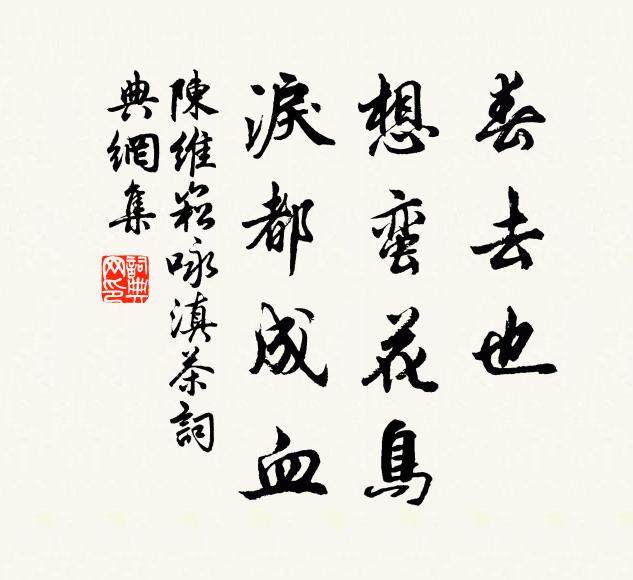 春去也
想蛮花鳥
淚都成血
陳維崧咏滇茶詞
典網集
詞典
网印